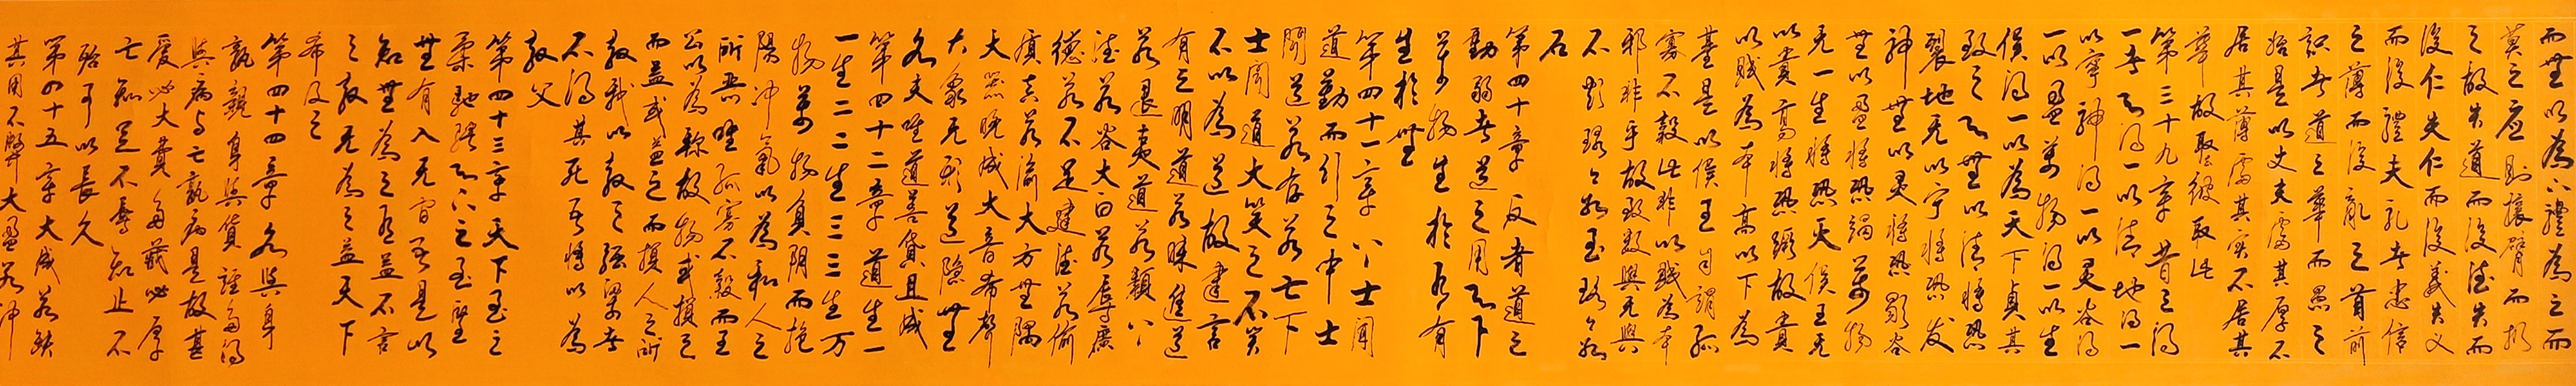 而無以為上禮為之而
莫之應則攘臂而扔
之故失道而後德失而
後仁失仁而後義失义
而後禮夫礼者忠信
之薄而後亂之首前
識者道之華而愚之
始是以丈夫處其厚不
居其薄處其實不居其
華故取彼取此
第三十九章昔之得
一者天得一以清地得一
以寧神得一以灵谷得
一以盈萬物得一以生
侯得一以為天下貞其
致之天無以清將恐
裂地无以宁將恐发
神無以灵將恐歇谷
無以盈將恐竭萬物
无一生將恐灭侯王无
以貴高將恐蹶故貴
以賤為本高以下為
基是以侯王自謂孤
寡不穀此非以賤為本
邪非乎故致数與无與
不欲琭々如玉珞々如
石
第四十章反者道之
動弱者道之用天下
萬物生於有有
生於無
第四十一章上士聞
道勤而行之中士
聞道若存若亡下
士聞道大笑之不笑
不以為道故建言
有之明道若昧進道
若退夷道若纇上
德若谷大白若辱廣
德若不足建德若偷
質真若渝大方無隅
大器晚成大音希聲
大象无形道隐無
名夫唯道善貸且成
第四十二章道生一
一生二二生三三生万
物萬物負陰而抱
陽沖氣以為和人之
所惡唯孤寡不穀而王
公以為称故物或損之
而益或益之而損人之所
教我以教之强梁者
不得其死吾將以為
教父
第四十三章天下至之
柔馳騁天下之至堅
無有入无間吾是以
知無為之有益不言
之教无為之益天下
希及之
第四十四章名與身
孰親身與貨孰多得
與病与亡孰病是故甚
爱必大費多藏必厚
亡知足不辱知止不
殆可以長久
第四十五章大成若缺
其用不弊大盈若沖